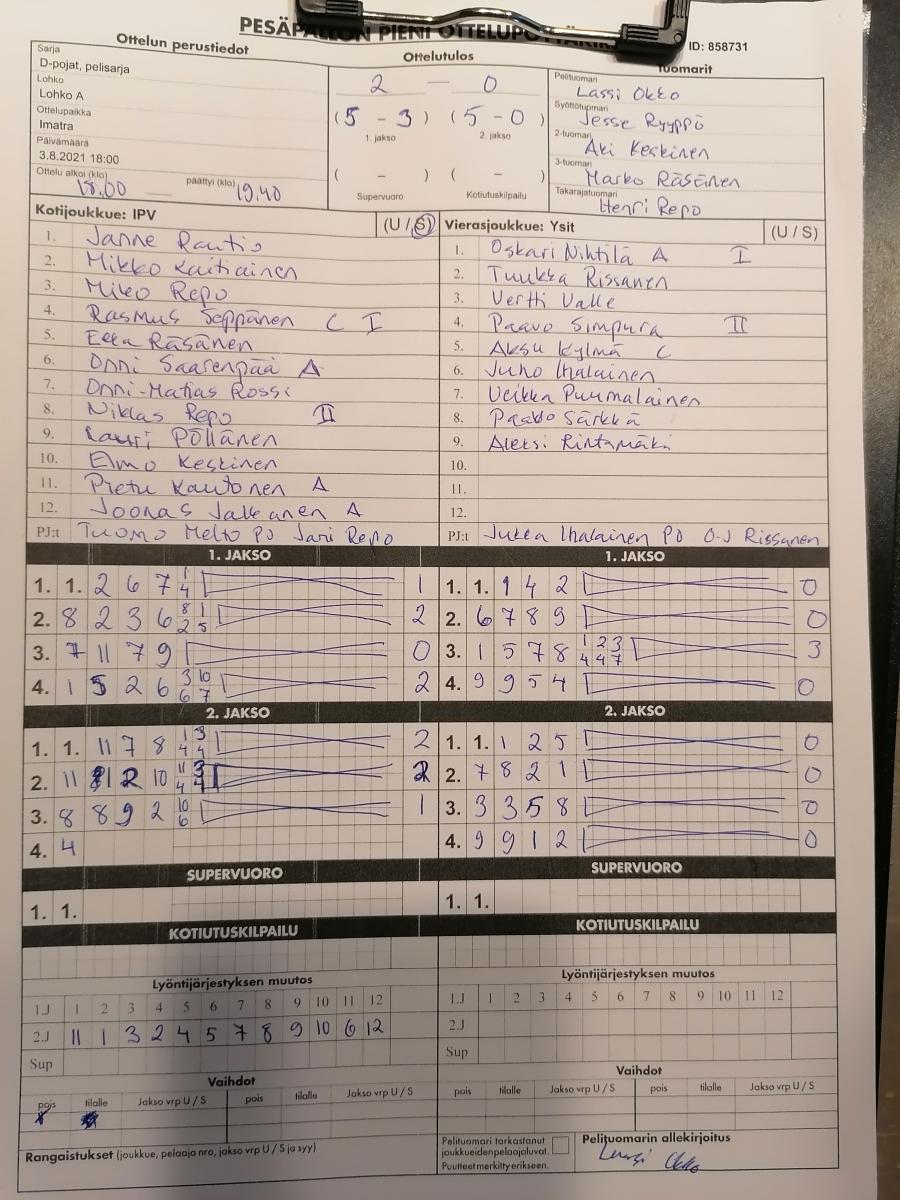 PESÄPALLON PIENI OTTELUPÖYTÄKIRJA
ID: 858731
Ottelun perustiedot
Sarja
D-pojat, pelisarja
Lohko
Lohko A
Ottelupaikka
Imatra
Päivämäärä
3.8.2021 18:00
Ottelu alkoi (klo) 18.00 päättyi (klo) 19.40
Ottelutulos
2 — 0
(5 - 3) (5 - 0)
1. jakso 2. jakso
( - ) ( - )
Supervuoro Kotiutuskilpailu
Tuomarit
Pelituomari
Lassi Okko
Syöttötuomari
Jesse Ryyppö
2-tuomari
Aki Keskinen
3-tuomari
Marko Räsänen
Takarajatuomari
Henri Repo
Kotijoukkue: IPV (U / S)
1. Janne Rautio
2. Mikko Kaitiainen
3. Miko Repo
4. Rasmus Seppänen C I
5. Eeka Räsänen
6. Onni Saarenpää A
7. Onni-Matias Rossi
8. Niklas Repo II
9. Lauri Pöllänen
10. Elmo Keskinen
11. Pietu Kautonen A
12. Joonas Jalkanen A
PJ:t Tuomo Melto PJ Jari Repo
Vierasjoukkue: Ysit (U / S)
1. Oskari Nihtilä A I
2. Tuukka Rissanen
3. Vertti Valle
4. Paavo Simpura II
5. Aksu Kylmä C
6. Juho Ihalainen
7. Veikka Puumalainen
8. Paavo Särkkä
9. Aleksi Rintamäki
10.
11.
12.
PJ:t Jukka Ihalainen PJ O-J Rissanen
1. JAKSO
1. 1. 2 6 7 1 4 1
2. 8 2 3 6 8 1 2 5 2
3. 7 11 7 9 0
4. 1 5 2 6 3 10 6 7 2
2. JAKSO
1. 1. 11 7 8 1 3 4 4 2
2. 11 12 10 11 3 4 4 2
3. 8 8 9 2 10 6 1
4. 4
SUPERVUORO
1. 1.
KOTIUTUSKILPAILU
Lyöntijärjestyksen muutos
1.J 1 2 3 4 5 6 7 8 9 10 11 12
2.J 11 1 3 2 4 5 7 8 9 10 6 12
Sup
Vaihdot
pois tilalle Jakso vrp U / S pois tilalle Jakso vrp U / S
Rangaistukset (joukkue, pelaaja nro, jakso vrp U / S ja syy)
1. JAKSO
1. 1. 1 4 2 0
2. 6 7 8 9 0
3. 1 5 7 8 1 2 3 4 4 7 3
4. 9 9 5 4 0
2. JAKSO
1. 1. 1 2 5 0
2. 7 8 2 1 0
3. 3 3 5 8 0
4. 9 9 1 2 0
SUPERVUORO
1. 1.
KOTIUTUSKILPAILU
Lyöntijärjestyksen muutos
1.J 1 2 3 4 5 6 7 8 9 10 11 12
2.J
Sup
Vaihdot
pois tilalle Jakso vrp U / S pois tilalle Jakso vrp U / S
Pelituomari tarkastanut
joukkueidenpelaajaluvat.
Puutteet merkitty erikseen.
Pelituomarin allekirjoitus
Lassi Okko